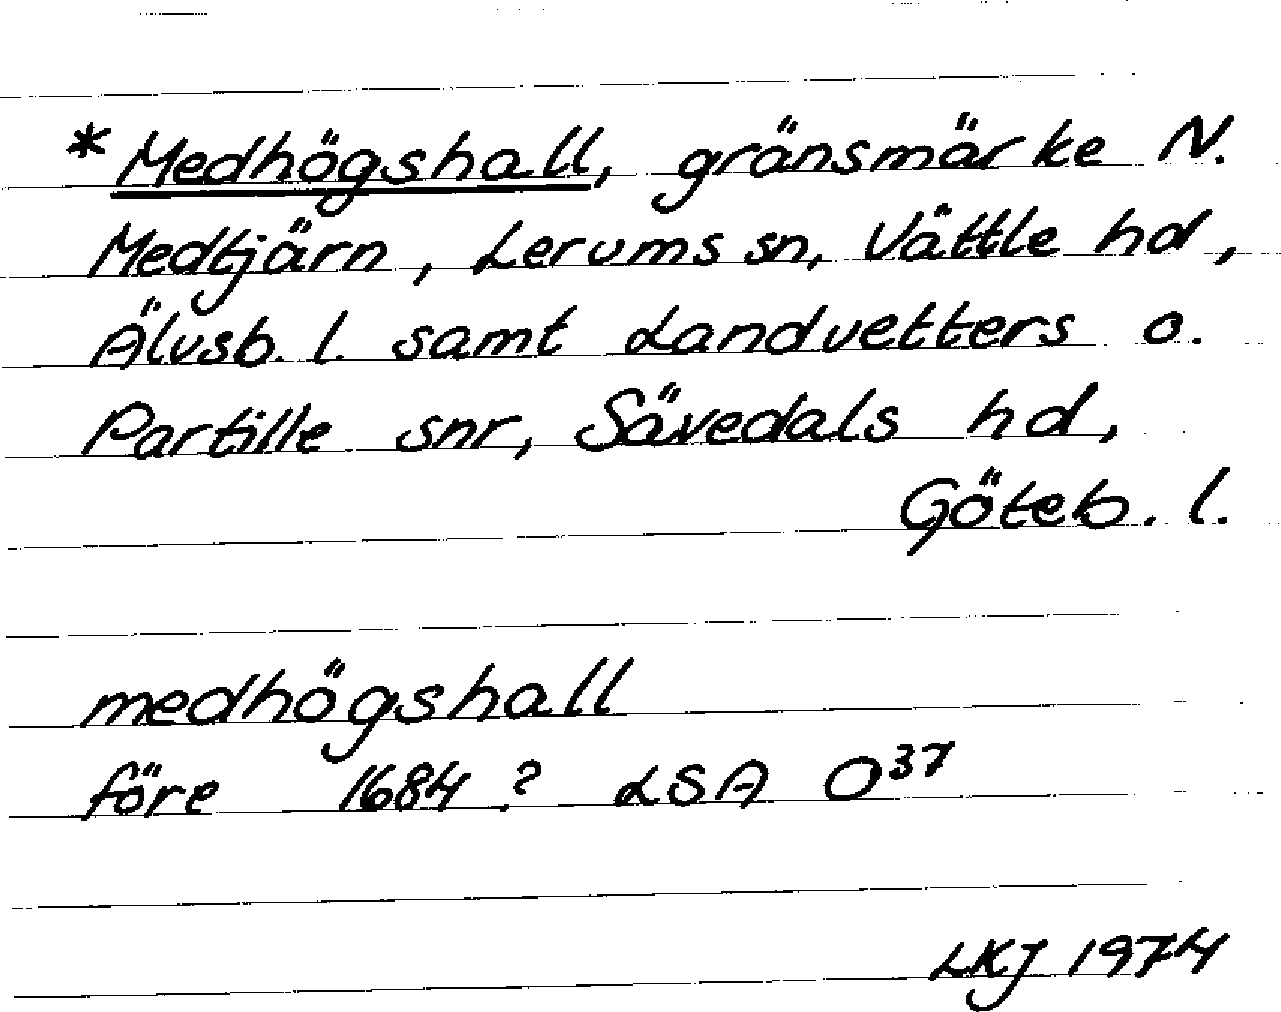 *Medhögshall, gränsmärke N.
Medtjärn, Lerums sn, Vättle hd,
Älvsb. l. samt Landvetters o.
Partille snr, Sävedals hd,
Göteb. l.
medhögshall
före 1684? LSA O³⁷
LKJ 1974